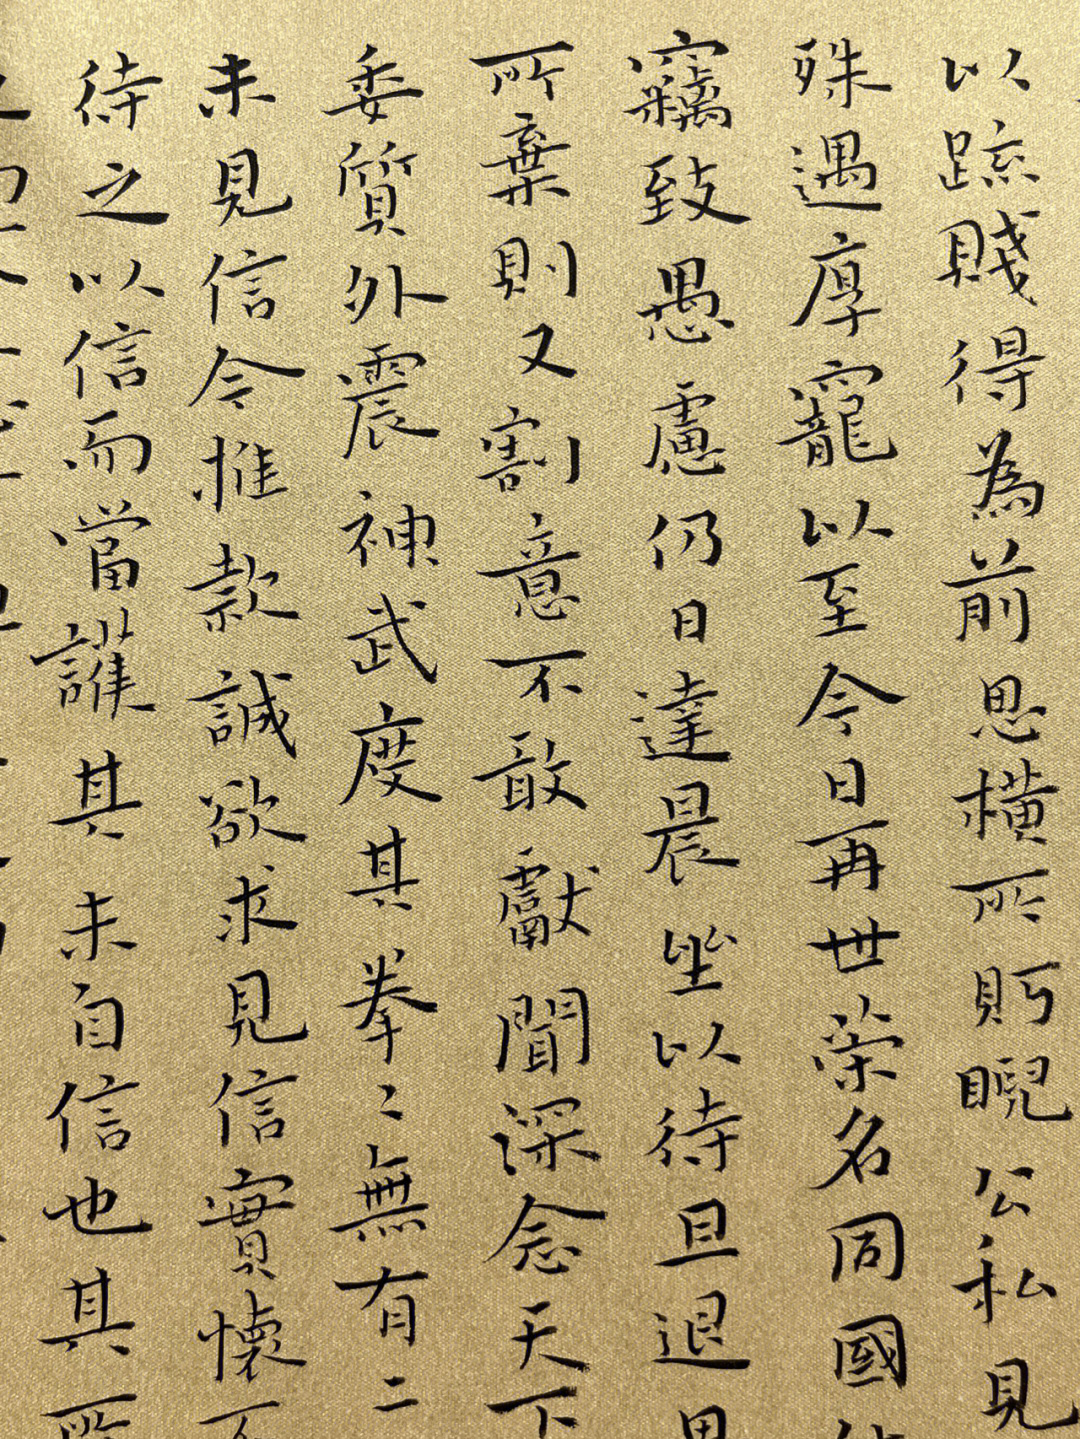 以疏賤得為前恩橫所眄睨公私見
殊遇厚寵以至今日再世榮名同國
竊致愚慮仍日達晨坐以待旦退思
所棄則又割意不敢獻聞深念天下
委質外震神武度其拳〻無有二
未見信今推款誠欲求見信實懷不
待之以信而當護其未自信也其所